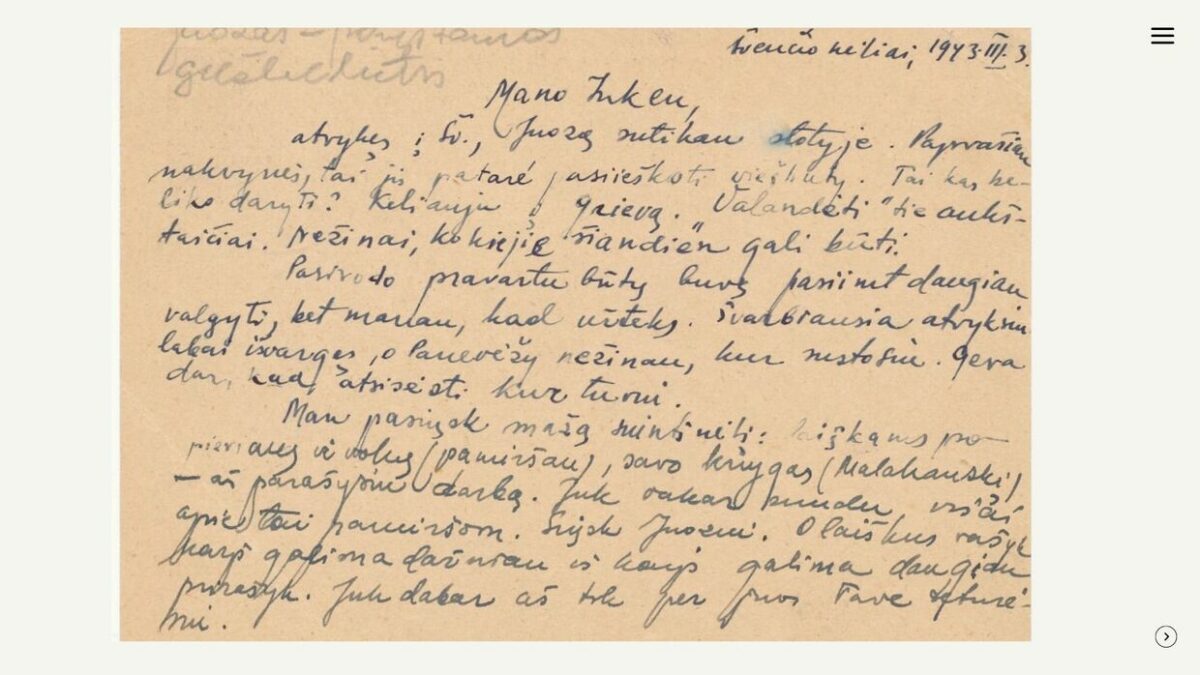 Juozas –
Švenčionėliai, 1943.III.3.
Mano Inken,
atvykęs į Šv., Juozą sutikau stotyje. Paprašiau
nakvynės, tai jis patarė pasiieškoti viešbuty. Tai kas be-
liko daryti? Keliauju į grievą. „Valandėti" tie aukš-
taičiai. Nežinai, kokie jie šiandien gali būti.
Pasirodo pravartu būtų buvę pasiimt daugiau
valgyti, bet manau, kad užteks. Svarbiausia atvyksiu
labai išvargęs, o Panevėžy nežinau, kur sustosiu. Gera
dar, kad atsisėsti kur turiu.
Man pasiųsk mažą siuntinėlį: laiškams po-
pieriaus ir vokų (pamiršau), savo knygas (Malahauski)
– aš parašysiu darbą. Juk vakar
apie tai pamiršom. Siųsk Juozui. O laiškus rašyk
kaip galima dažniau ir kaip galima daugiau
prirašyk. Juk dabar aš tik per juos Tave teturė-
siu.